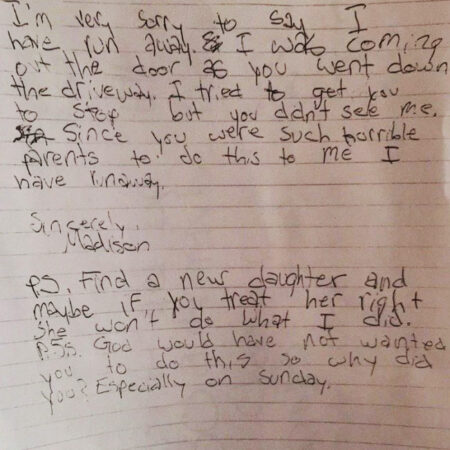 I'm very sorry to say I
have run away. I was coming
out the door as you went down
the driveway. I tried to get you
to stop but you didn't see me.
Since you were such horrible
parents to do this to me I
have runaway.
Sincerely,
Madison
PS. Find a new daughter and
maybe if you treat her right
she won't do what I did.
P.S.S. God would have not wanted
you to do this so why did
you? Especially on Sunday.